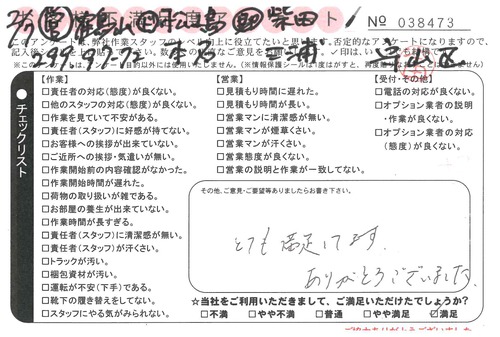 柴田
№ 038473
このアンケートは、弊社作業スタッフのレベル向上に役立てたいと思います。否定的なアンケートになりますので、
チェックリスト
【作業】
□責任者の対応(態度)が良くない。
□他のスタッフの対応(態度)が良くない。
□作業を見ていて不安がある。
□責任者(スタッフ)に好感が持てない。
□お客様への挨拶が出来ていない。
□ご近所への挨拶・気遣いが無い。
□作業開始前の内容確認がなかった。
□作業開始時間が遅れた。
□荷物の取り扱いが雑である。
□お部屋の養生が出来ていない。
□作業時間が長すぎる。
□責任者(スタッフ)に清潔感が無い。
□責任者(スタッフ)が汗くさい。
□トラックが汚い。
□梱包資材が汚い。
□運転が不安(下手)である。
□靴下の履き替えをしてない。
□スタッフにやる気がみられない。
【営業】
□見積もり時間に遅れた。
□見積もり時間が長い。
□営業マンに清潔感が無い。
□営業マンが煙草くさい。
□営業マンが汗くさい。
□営業態度が良くない。
□営業の説明と作業が一致してない。
【受付・その他】
□電話の対応が良くない。
□オプション業者の説明
・作業が良くない。
□オプション業者の対応
(態度)が良くない。
その他、ご意見・ご要望等ありましたらお書き下さい。
とても満足してます。
ありがとうございました。
☆当社をご利用いただきまして、ご満足いただけたでしょうか?
□不満 □やや不満 □普通 □やや満足 □満足
ご協力ありがとうございました